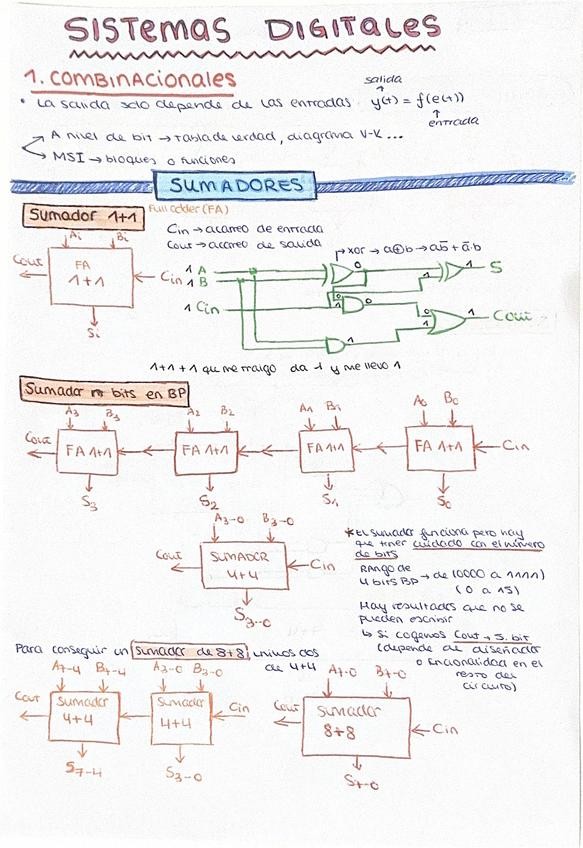 SISTEMAS DIGITALES
1. COMBINACIONALES
salida
• La salida solo depende de las entradas. y(t) = f(e(t))
entrada
A nivel de bit → tabla de verdad, diagrama V-K ...
MSI → bloques o funciones
SUMADORES
Sumador 1+1 Full adder (FA)
Cin → acarreo de entrada
Cout → acarreo de salida
Ai Bi
Cout FA 1+1 Cin
Si
xor → a⊕b → ab̄ + ā·b
1 A
1 B
1 Cin
0 1 1 S
0 0 1
0 1 1 Cout
1
1+1+1 que me traigo da 1 y me llevo 1
Sumador n bits en BP
A3 B3 A2 B2 A1 B1 A0 B0
Cout FA 1+1 FA 1+1 FA 1+1 FA 1+1 Cin
S3 S2 S1 S0
A3-0 B3-0
Cout SUMADOR 4+4 Cin
S3-0
* El sumador funciona pero hay
que tener cuidado con el número
de bits
Rango de
4 bits BP → de (0000 a 1111)
(0 a 15)
Hay resultados que no se
pueden escribir
↳ Si cogemos Cout → 5. bit
(depende de diseñador
o funcionalidad en el
resto del
circuito)
Para conseguir un sumador de 8+8, unimos dos
de 4+4
A7-4 B7-4 A3-0 B3-0
Cout Sumador 4+4 Sumador 4+4 Cin
S7-4 S3-0
A7-0 B7-0
Cout Sumador 8+8 Cin
S7-0